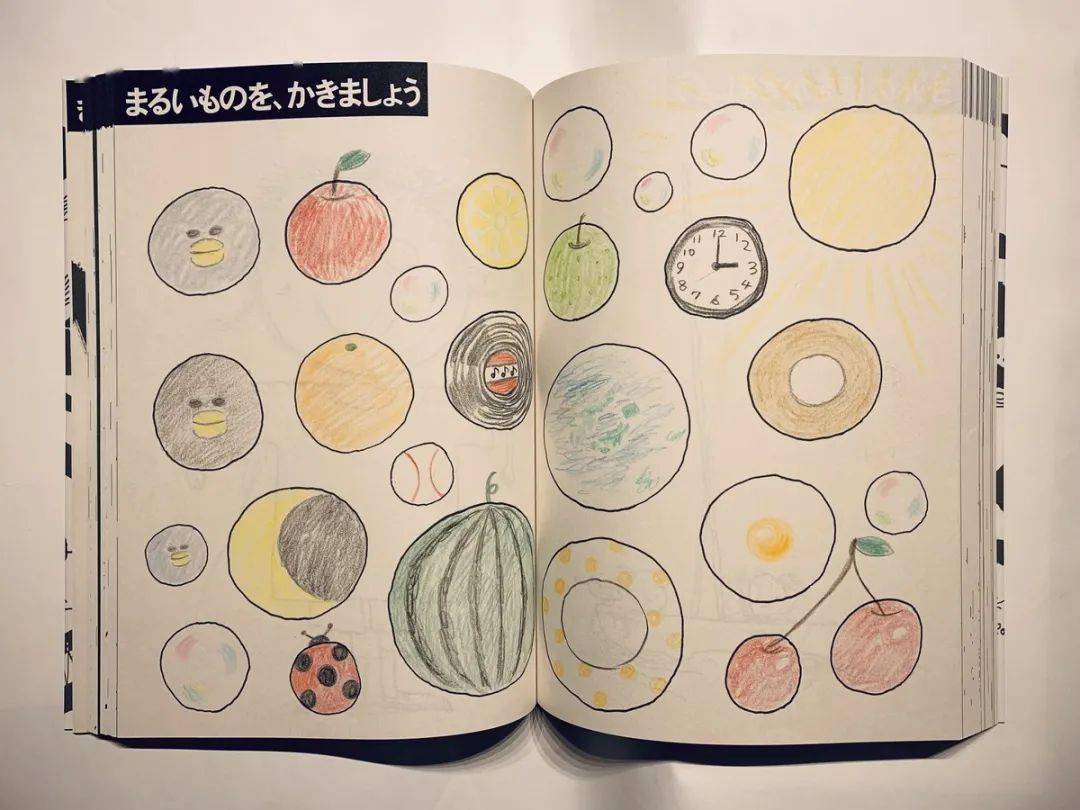 まるいものを、かきましょう
12
11 1
10 2
9 3
8 4
7 5
6